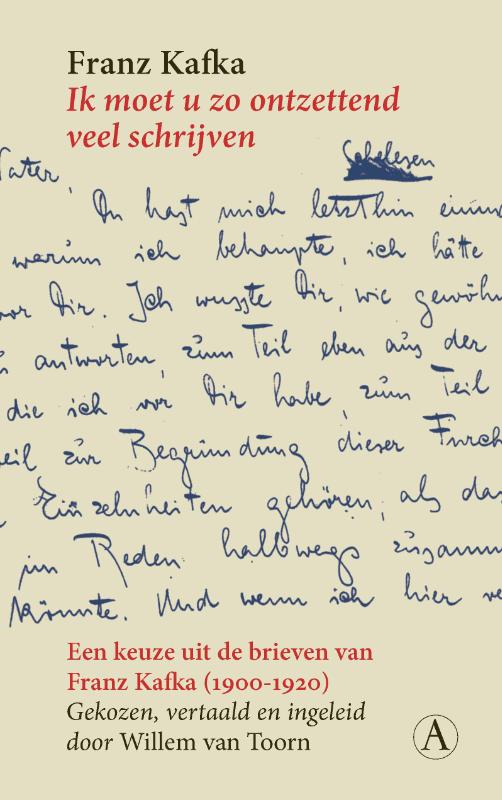 Franz Kafka
Ik moet u zo ontzettend
veel schrijven
Schelesen
Vater,
Du hast mich letzthin einm
warum ich behaupte, ich hätte
vor Dir. Ich wusste Dir, wie gewöhn
antworten, zum Teil eben aus der
die ich vor Dir habe, zum Teil
weil zur Begründung dieser Furch
Einzelnheiten gehören, als das
im Reden halbwegs zusamm
könnte. Und wenn ich hier ve
Een keuze uit de brieven van
Franz Kafka (1900-1920)
Gekozen, vertaald en ingeleid
door Willem van Toorn
A